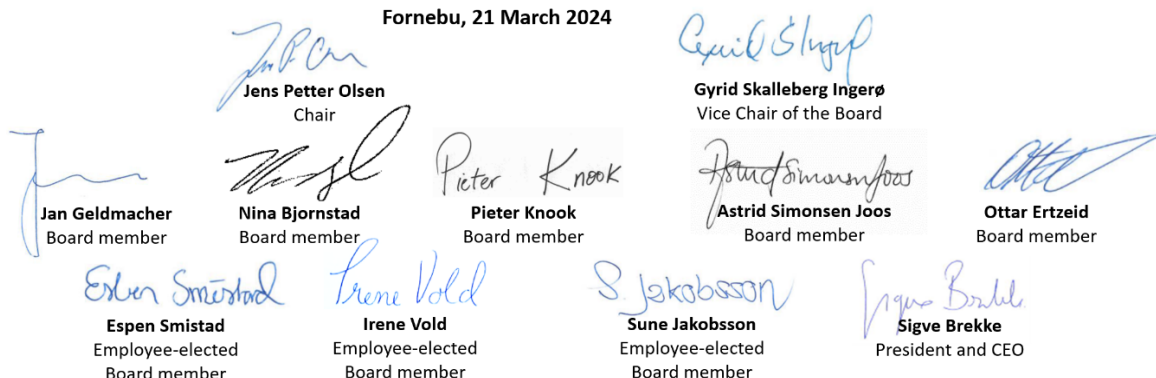 Fornebu, 21 March 2024
Jens Petter Olsen
Chair
Gyrid Skalleberg Ingerø
Vice Chair of the Board
Jan Geldmacher
Board member
Nina Bjornstad
Board member
Pieter Knook
Pieter Knook
Board member
Astrid Simonsen Joos
Astrid Simonsen Joos
Board member
Ottar Ertzeid
Board member
Espen Smistad
Espen Smistad
Employee-elected
Board member
Irene Vold
Irene Vold
Employee-elected
Board member
S. Jakobsson
Sune Jakobsson
Employee-elected
Board member
Sigve Brekke
Sigve Brekke
President and CEO